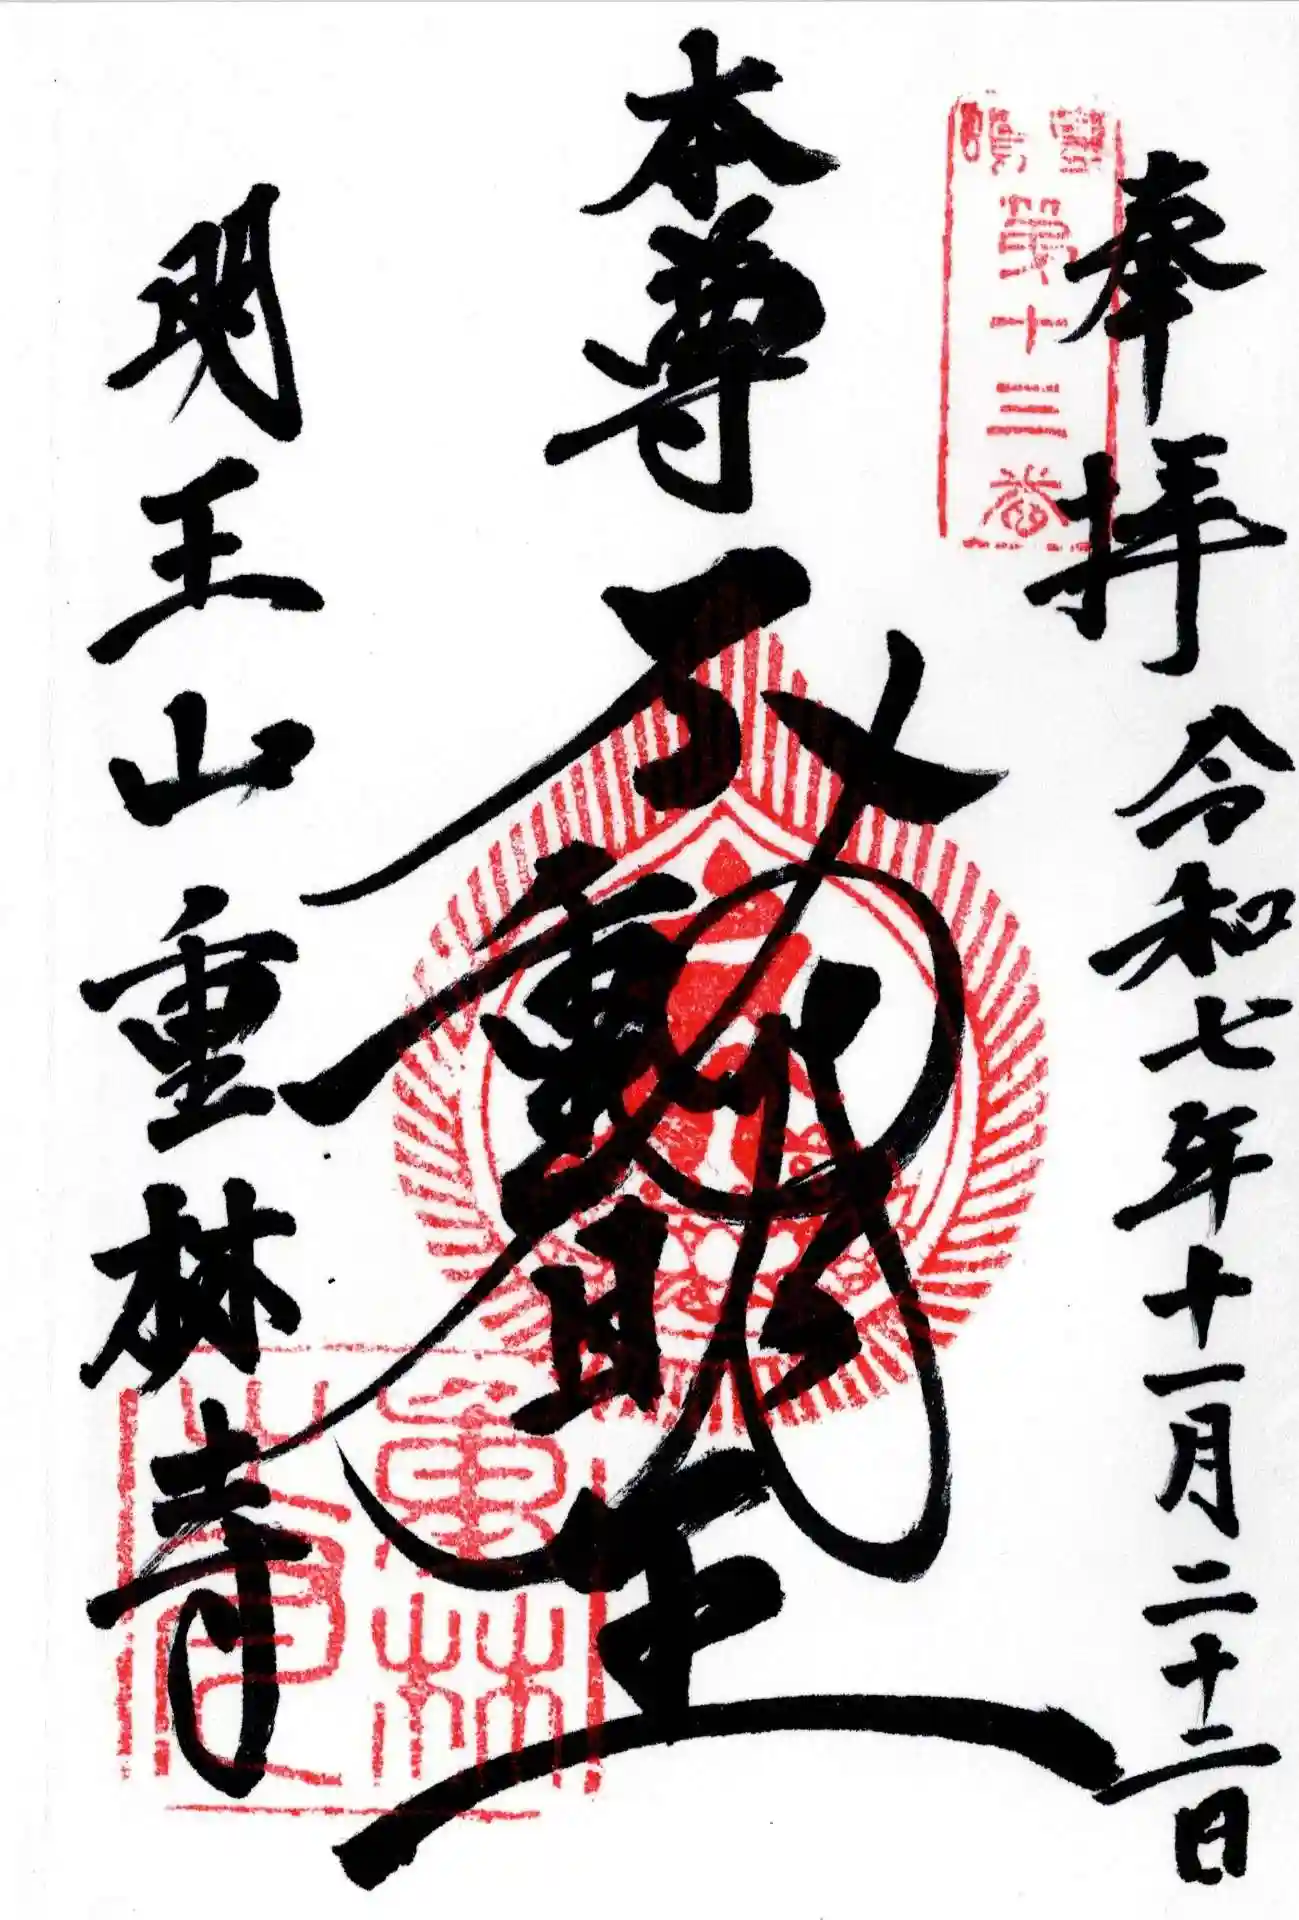 奉拝 令和七年十一月二十二日
第十三番
本尊 不動明王
明王山重林寺
重林